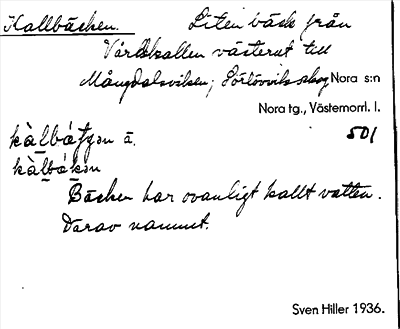 Kallbäcken. Liten bäck från
Vårdkallen västerut till
Mångdalsviken; Sörlövviks skog Nora s:n
Nora tg., Västernorrl. l.
501
Bäcken har ovanligt kallt vatten.
Därav namnet.
Sven Hiller 1936.